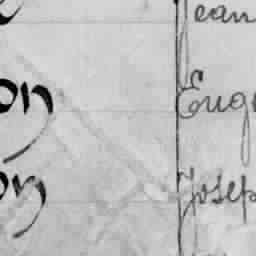 Jean
on Eug
on Josep